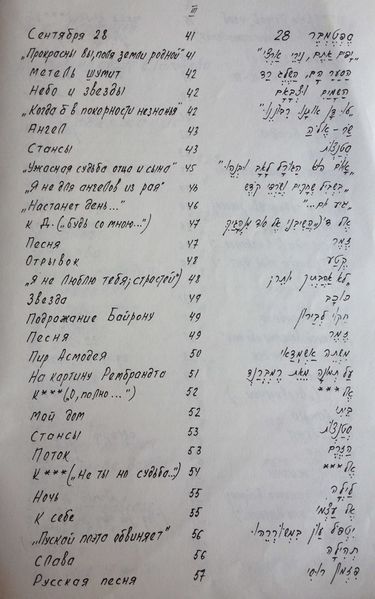 III
Сентября 28 41 28 סֶפְּטֶמְבֶּר
„Прекрасны вы, поля земли родной" 41
Метель шумит 42
Небо и звезды 42 הַשָּׁמַיִם וְצְבָאָם
„Когда б в покорности незнанья" 42
Ангел 43
Стансы 43 סְטַנְסוֹת
„Ужасная судьба отца и сына" 45
„Я не для ангелов из рая" 46
„Настанет день..." 46
К Д. („Будь со мною...") 47
Песня 47 זֶמֶר
Отрывок 48 קֶטַע
„Я не люблю тебя; страстей") 48
Звезда 49 כּוֹכָב
Подражание Байрону 49 חִקּוּי לְבַּיְרוֹן
Песня 49 זֶמֶר
Пир Асмодея 50 מִשְׁתֵּה אַשְׁמְדַאי
На картину Рембрандта 51 עַל תְּמוּנָה מֵאֵת רֶמְבְּרַנְדְט
К*** („О, полно...") 52 אֶל ***
Мой дом 52 בֵּיתִי
Стансы 53 סְטַנְסוֹת
Поток 53 הַזֶּרֶם
К*** („Не ты но судьба..") 54 אֶל ***
Ночь 55 לַיְלָה
К себе 55 אֶל עַצְמִי
„Пускай поэта обвиняет" 56
Слава 56 תְּהִילָּה
Русская песня 57 פִּזְמוֹן רוּסִי